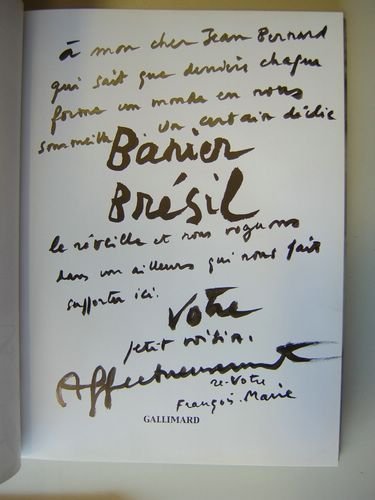 à mon cher Jean Bernard
qui sait que derrière chaque
forme un monde en nous
sommeille. Un certain déclic
Banier
Brésil
le réveille et nous voguons
dans un ailleurs qui nous fait
supporter ici.
Votre
petit voisin.
Affectueusement
re-votre
François-Marie
GALLIMARD